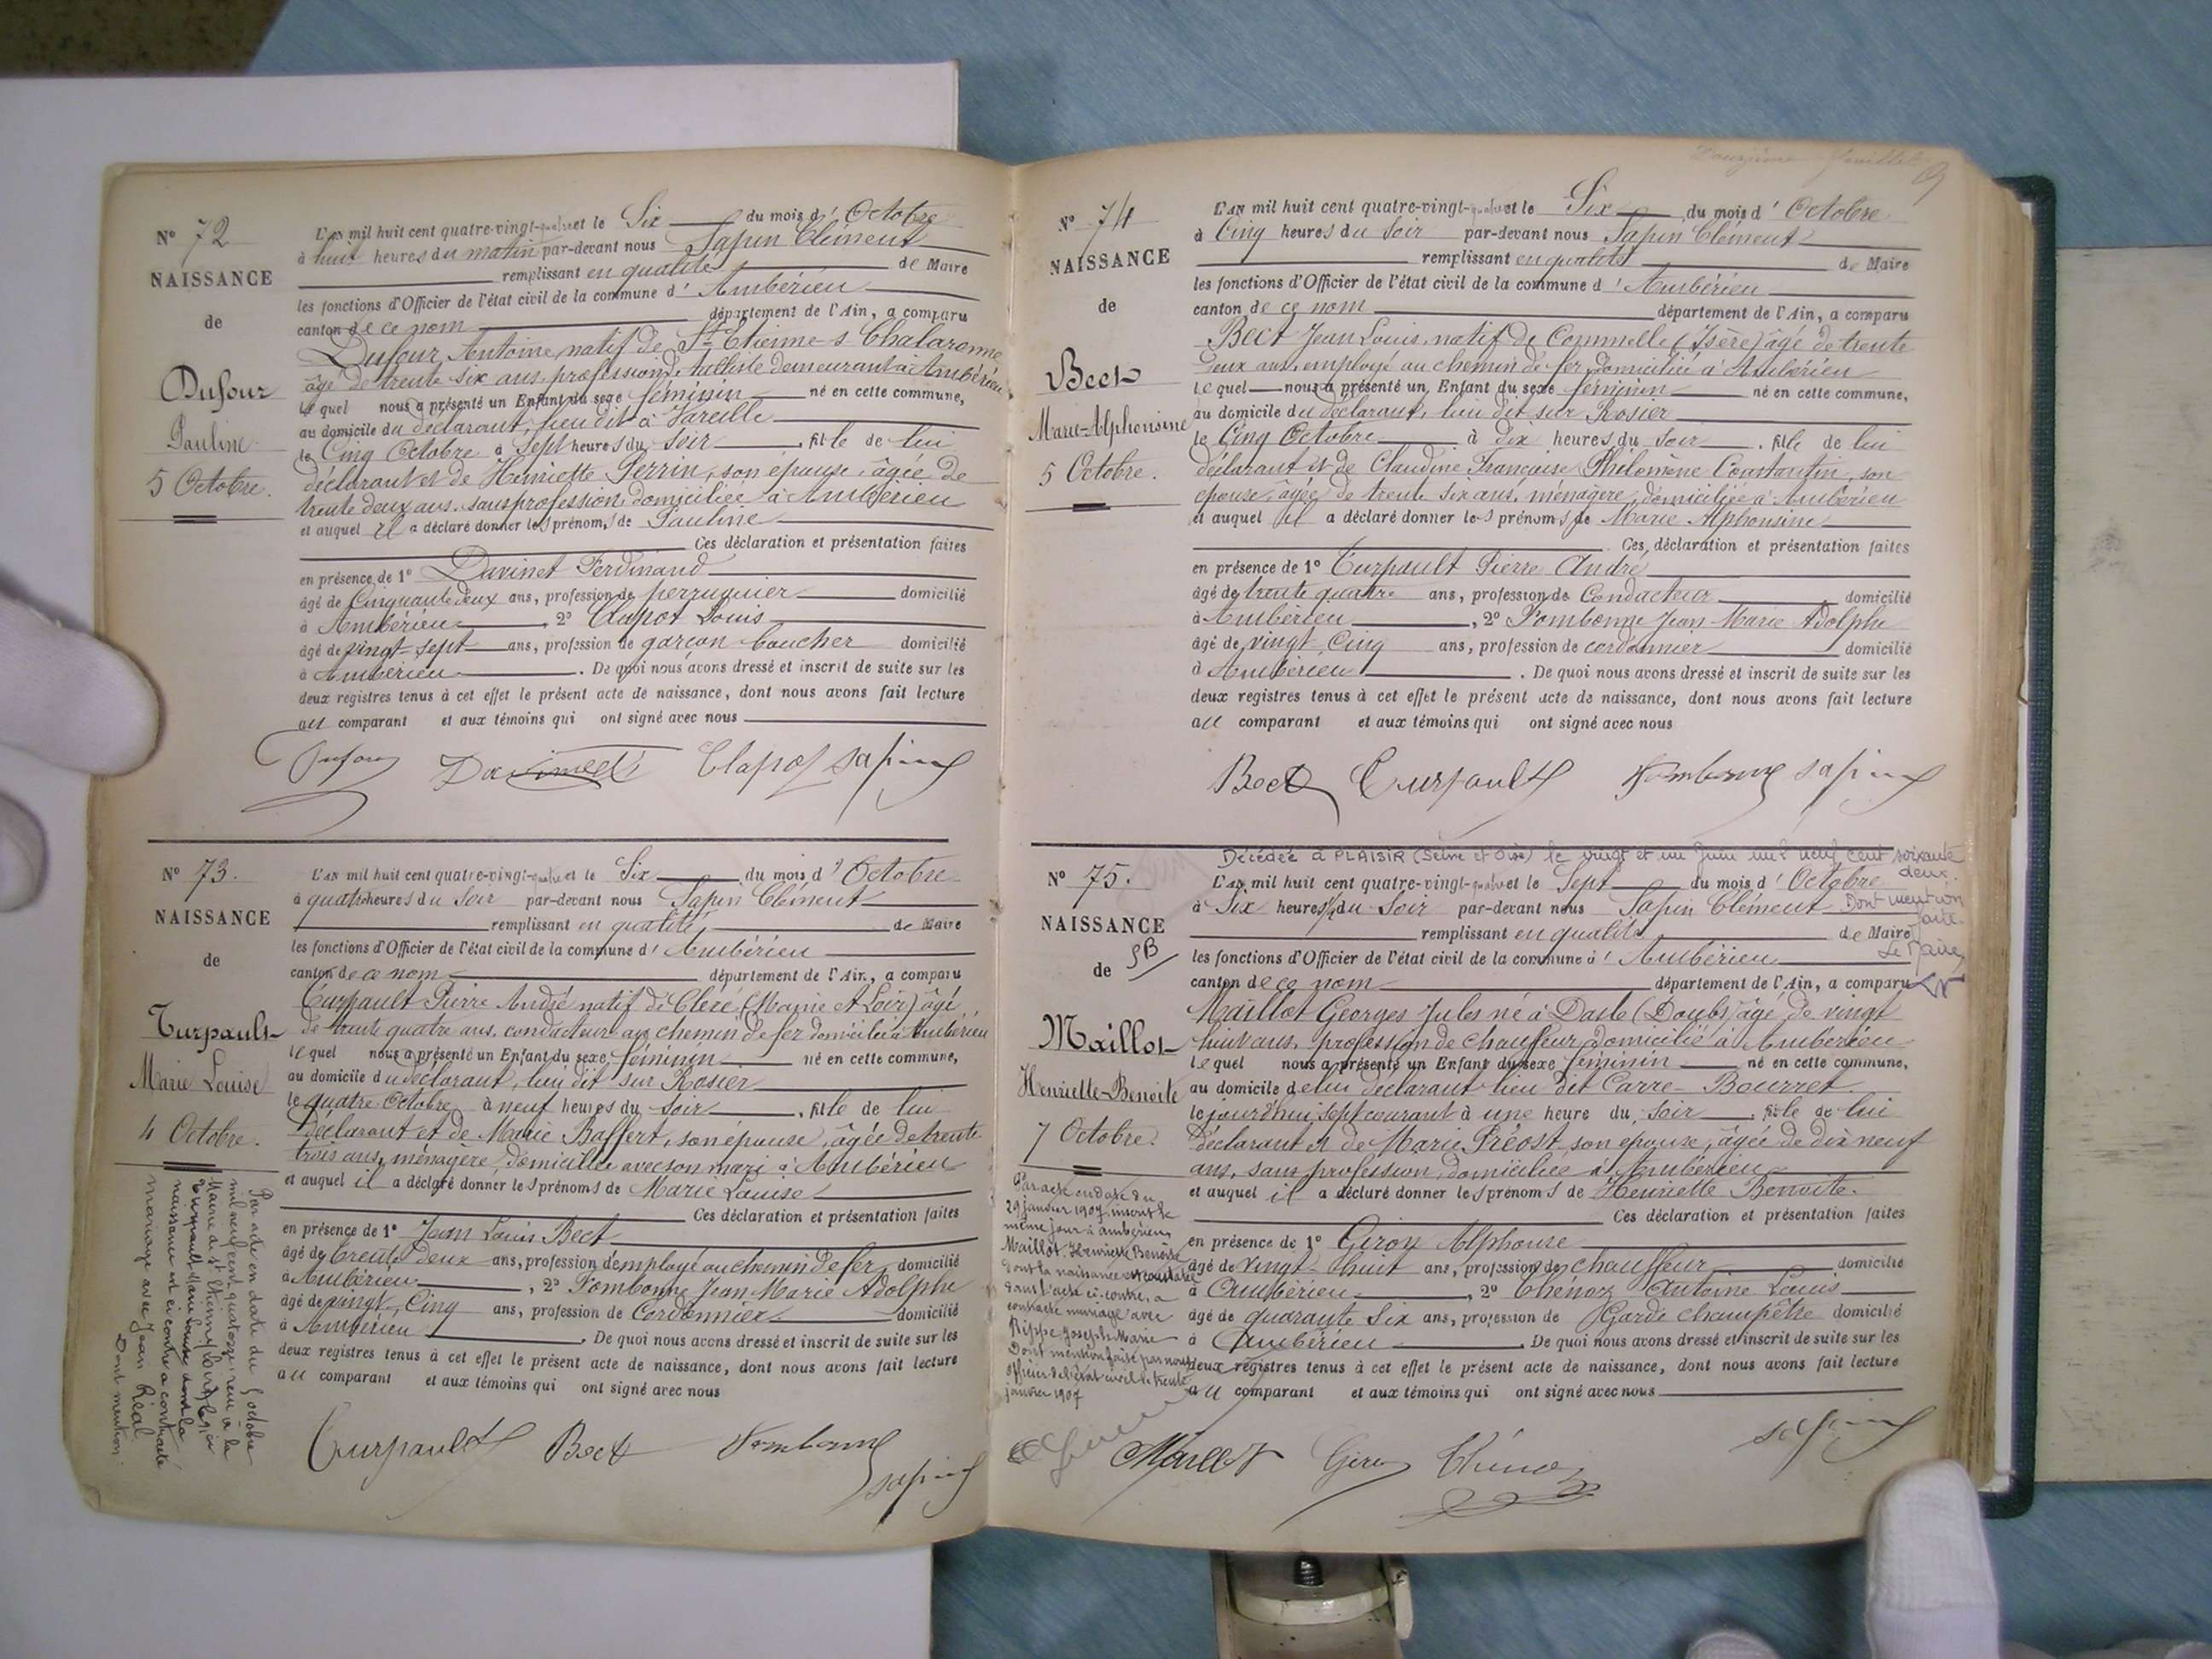 N° 72
NAISSANCE
de
Dufour
Pauline
5 Octobre.
L'an mil huit cent quatre-vingt-quatre et le Six du mois d'Octobre
à huit heures du matin par-devant nous Sapin Clément
remplissant en qualité de Maire
les fonctions d'Officier de l'état civil de la commune d'Ambérieu
canton de ce nom département de l'Ain, a comparu
Dufour Antoine, natif de St Etienne s Chalaronne
âgé de trente six ans, profession d demeurant à Ambérieu
le quel nous a présenté un Enfant du sexe féminin né en cette commune,
au domicile du déclarant, lieu dit à Vareille
le Cinq Octobre à Sept heures du Soir, fille de lui
déclarant et de Henriette Perrin, son épouse, âgée de
trente deux ans, sans profession, domiciliée à Ambérieu
et auquel il a déclaré donner les prénoms de Pauline
Ces déclaration et présentation faites
en présence de 1° Davinet Ferdinand
âgé de Cinquante deux ans, profession de perruquier domicilié
à Ambérieu, 2° Clapot Louis
âgé de vingt-sept ans, profession de garçon boucher domicilié
à Ambérieu. De quoi nous avons dressé et inscrit de suite sur les
deux registres tenus à cet effet le présent acte de naissance, dont nous avons fait lecture
au comparant et aux témoins qui ont signé avec nous
Dufour Davinet Clapot Sapin
N° 73.
NAISSANCE
de
Turpault
Marie Louise
4 Octobre.
Par acte en date du 5 octobre
mil neuf cent quatorze reçu à la
Mairie de St Etienne
Turpault Marie Louise dont la
naissance est ci contre a contracté
mariage avec Jean Réal
Dont mention.
L'an mil huit cent quatre-vingt-quatre et le Six du mois d'Octobre
à quatre heures du Soir par-devant nous Sapin Clément
remplissant en qualité de Maire
les fonctions d'Officier de l'état civil de la commune d'Ambérieu
canton de ce nom département de l'Ain, a comparu
Turpault Pierre André natif de Cléré (Maine et Loir) âgé
de trente quatre ans, conducteur aux chemin de fer domicilié à Ambérieu
le quel nous a présenté un Enfant du sexe féminin né en cette commune,
au domicile du déclarant, lieu dit sur Rosier
le quatre Octobre à neuf heures du Soir, fille de lui
déclarant et de Marie Baffert, son épouse, âgée de trente
trois ans, ménagère, domiciliée avec son mari à Ambérieu
et auquel il a déclaré donner les prénoms de Marie Louise
Ces déclaration et présentation faites
en présence de 1° Jean Louis Bect
âgé de trente deux ans, profession d'employé au chemin de fer domicilié
à Ambérieu, 2° Fombonne Jean Marie Adolphe
âgé de vingt Cinq ans, profession de Cordonnier domicilié
à Ambérieu. De quoi nous avons dressé et inscrit de suite sur les
deux registres tenus à cet effet le présent acte de naissance, dont nous avons fait lecture
au comparant et aux témoins qui ont signé avec nous
Turpault Bect Fombonne
Sapin
Douzième feuillet
N° 74
NAISSANCE
de
Bect
Marie-Alphonsine
5 Octobre.
L'an mil huit cent quatre-vingt-quatre et le Six du mois d'Octobre
à Cinq heures du Soir par-devant nous Sapin Clément
remplissant en qualité de Maire
les fonctions d'Officier de l'état civil de la commune d'Ambérieu
canton de ce nom département de l'Ain, a comparu
Bect Jean Louis, natif de Commelle (Isère) âgé de trente
deux ans, employé au chemin de fer domicilié à Ambérieu
le quel nous a présenté un Enfant du sexe féminin né en cette commune,
au domicile du déclarant, lieu dit sur Rosier
le Cinq Octobre à dix heures du Soir, fille de lui
déclarant et de Claudine Françoise Philomène Constantin, son
épouse, âgée de trente six ans, ménagère, domiciliée à Ambérieu
et auquel il a déclaré donner les prénoms de Marie Alphonsine
Ces déclaration et présentation faites
en présence de 1° Turpault Pierre André
âgé de trente quatre ans, profession de Conducteur domicilié
à Ambérieu, 2° Fombonne Jean Marie Adolphe
âgé de vingt Cinq ans, profession de cordonnier domicilié
à Ambérieu. De quoi nous avons dressé et inscrit de suite sur les
deux registres tenus à cet effet le présent acte de naissance, dont nous avons fait lecture
au comparant et aux témoins qui ont signé avec nous
Bect Turpault Fombonne Sapin
Décédée à PLAISIR (Seine et Oise) le vingt et un Juin mil neuf cent soixante
deux.
Dont mention
faite.
Le Maire,
N° 75.
NAISSANCE
de
Maillot
Henriette-Benoite
7 Octobre.
Par acte en date du
29 janvier 1907, inscrit le
même jour à Ambérieu
Maillot Henriette Benoite
dont la naissance est constatée
dans l'acte ci-contre, a
contracté mariage avec
Rippe Joseph Marie
Dont mention faite par nous
officier de l'état civil le trente
janvier 1907
L'an mil huit cent quatre-vingt-quatre et le Sept du mois d'Octobre
à Six heures du Soir par-devant nous Sapin Clément
remplissant en qualité de Maire
les fonctions d'Officier de l'état civil de la commune d'Ambérieu
canton de ce nom département de l'Ain, a comparu
Maillot Georges Jules né à Dasle (Doubs) âgé de vingt
huit ans, profession de chauffeur domicilié à Ambérieu
le quel nous a présenté un Enfant du sexe féminin né en cette commune,
au domicile de lui déclarant lieu dit Carre-Bourret
le jourd'hui sept courant à une heure du soir, fille de lui
déclarant et de Marie Préost, son épouse, âgée de dix neuf
ans, sans profession, domiciliée à Ambérieu
et auquel il a déclaré donner les prénoms de Henriette Benoite.
Ces déclaration et présentation faites
en présence de 1° Giron Alphonse
âgé de vingt-huit ans, profession de chauffeur domicilié
à Ambérieu, 2° Thénoz Antoine Louis
âgé de quarante Six ans, profession de Garde champêtre domicilié
à Ambérieu. De quoi nous avons dressé et inscrit de suite sur les
deux registres tenus à cet effet le présent acte de naissance, dont nous avons fait lecture
au comparant et aux témoins qui ont signé avec nous
Maillot Giron Thénoz Sapin